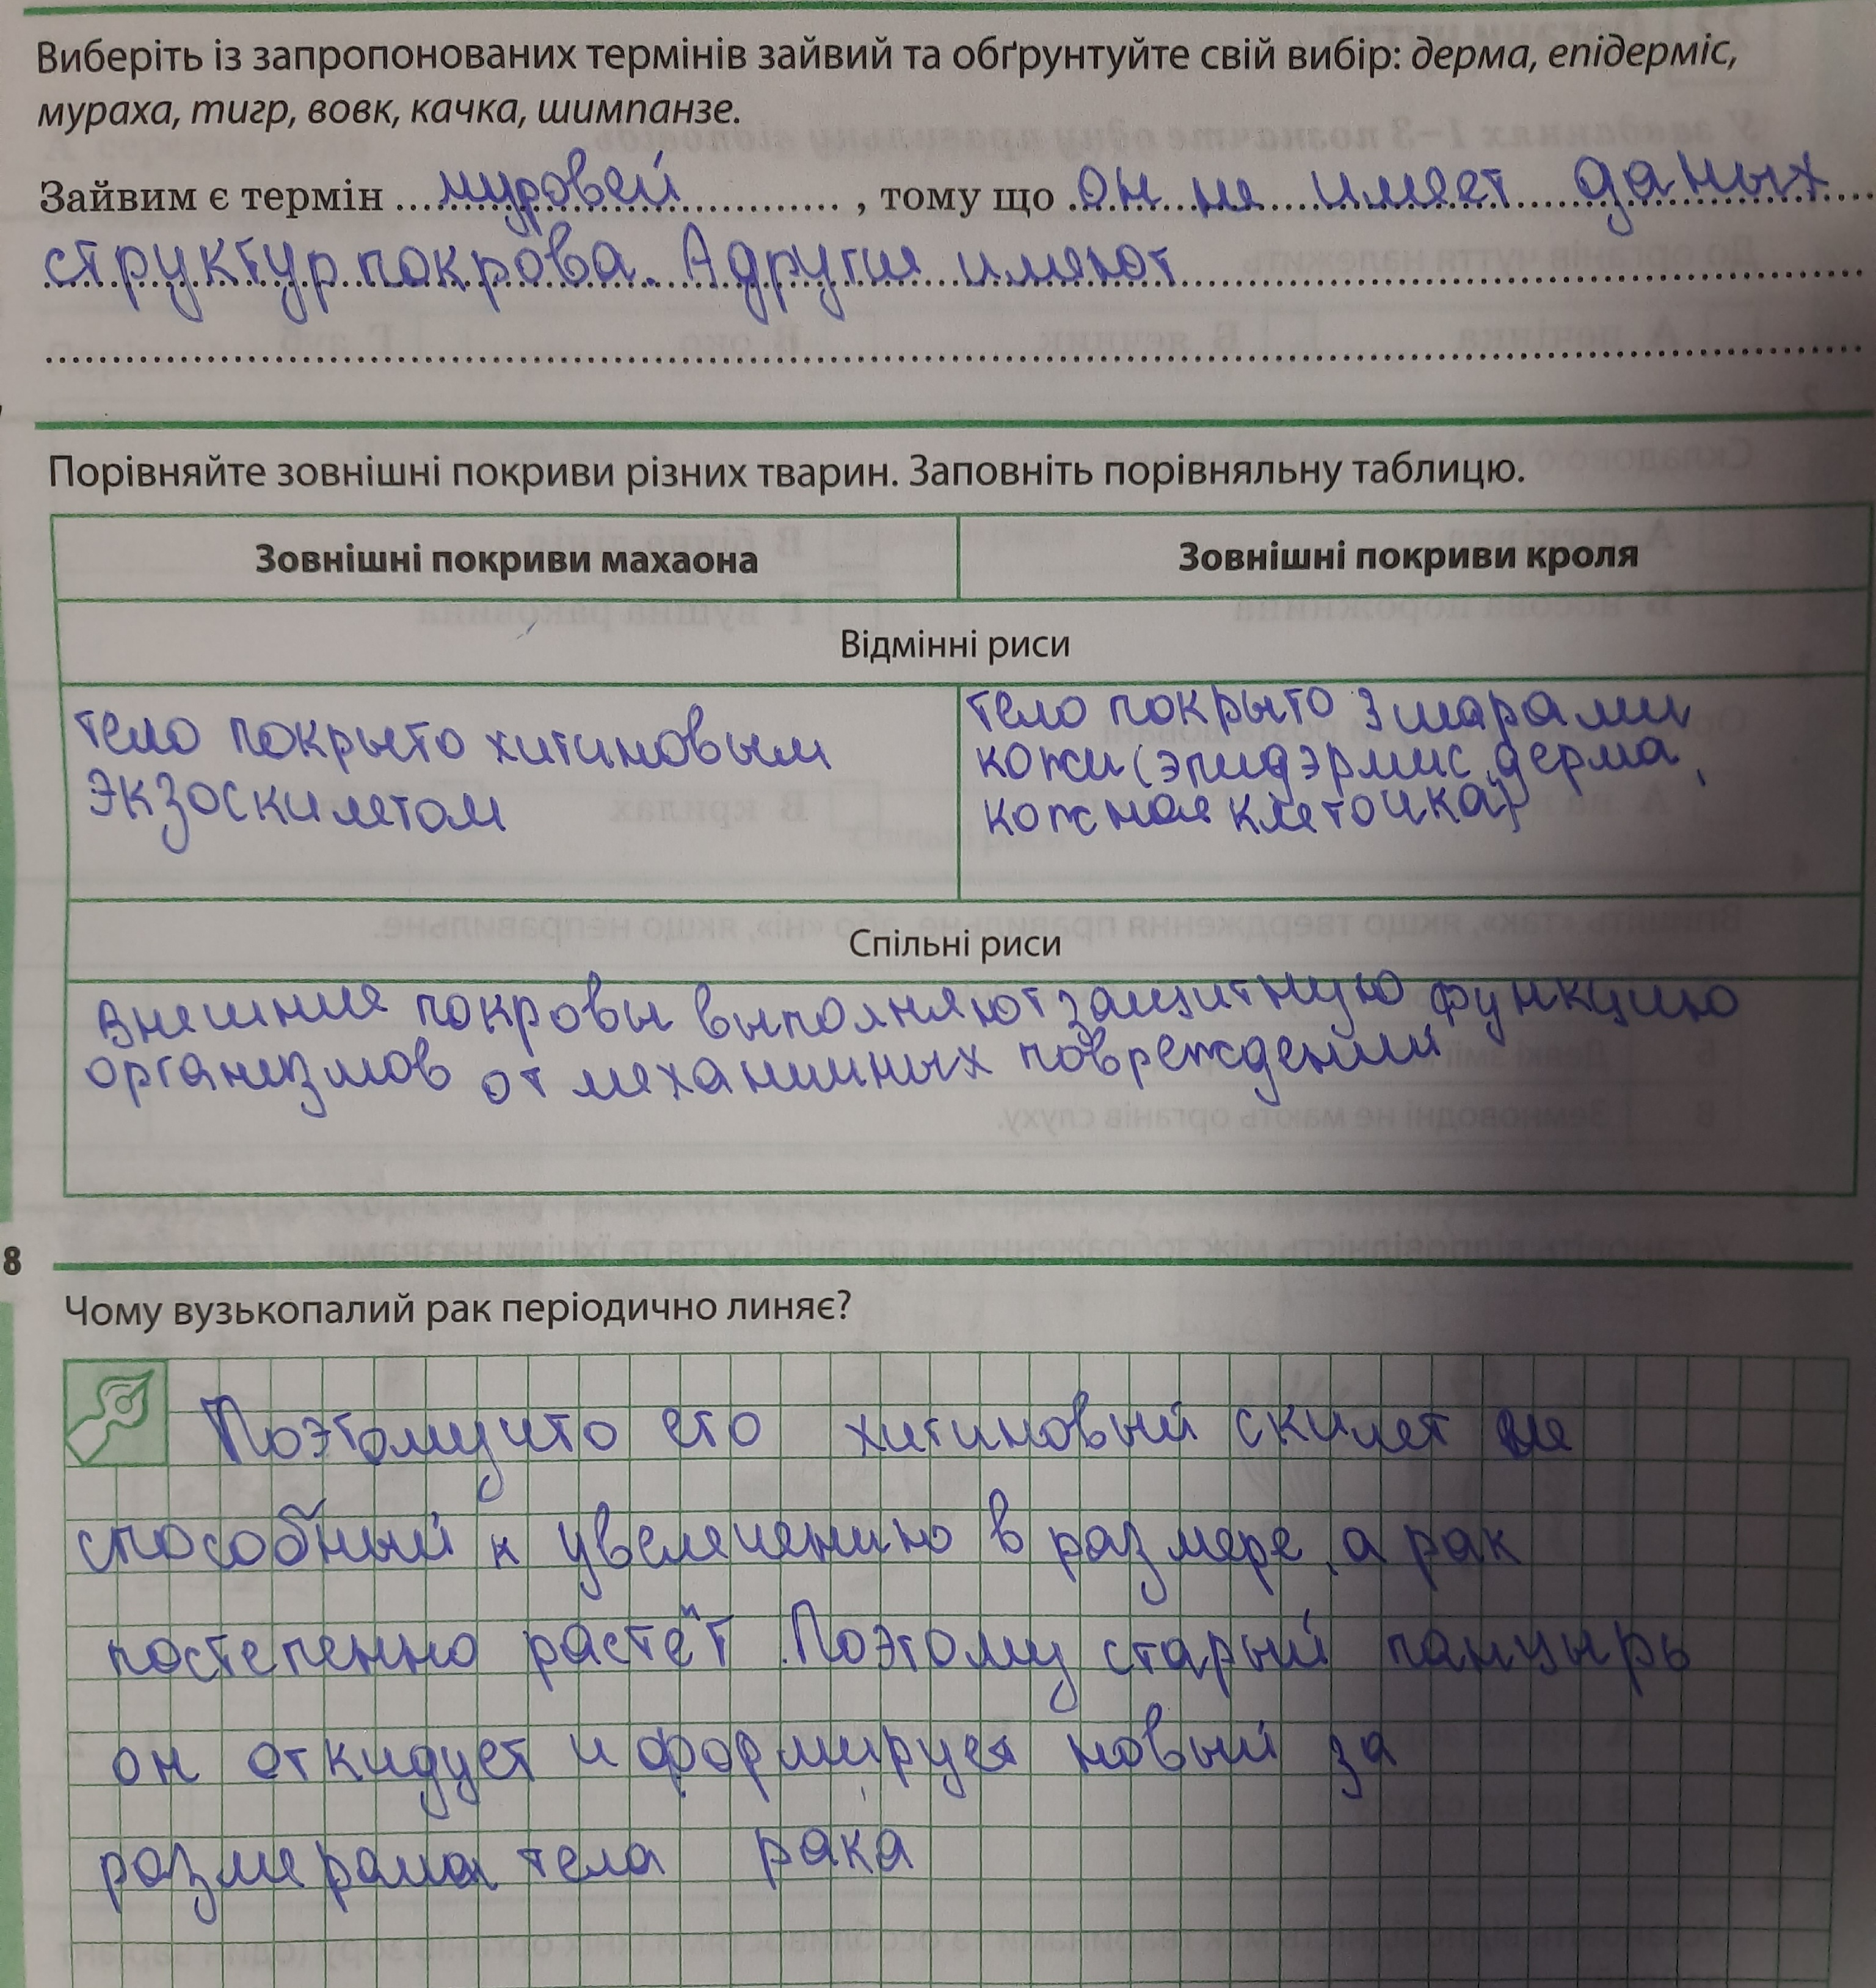 Виберіть із запропонованих термінів зайвий та обґрунтуйте свій вибір: дерма, епідерміс,
мураха, тигр, вовк, качка, шимпанзе.
Зайвим є термін муровей, тому що он не имеет даных
структур покрова. А другие имеют
Порівняйте зовнішні покриви різних тварин. Заповніть порівняльну таблицю.
Зовнішні покриви махаона Зовнішні покриви кроля
Відмінні риси
тело покрыто хитиновым
экзоскилетом
тело покрыто 3 шарами
кожи (эпидэрмис, дерма,
кожная клеточка)
Спільні риси
Внешние покровы выполняют защитную функцию
организмов от механичных повреждений
8
Чому вузькопалий рак періодично линяє?
Поэтому что его хитиновый скилет не
способный к увелечению в размере, а рак
постепенно растёт. Поэтому старый панцырь
он откидует и формирует новый за
размерами тела рака